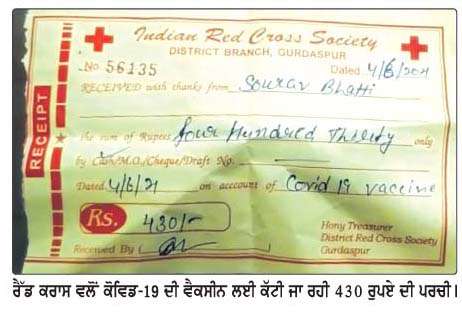 Indian Red Cross Society
DISTRICT BRANCH, GURDASPUR
No 56135 Dated 4/6/2021
RECEIVED with thanks from Sourav Bhatti
the sum of Rupees four Hundred Thirty only
by Cash/M.O./Cheque/Draft No.
Dated 4/6/21 on acccount of Covid 19 vaccine
Rs. 430/-
Received By (
Hony Treasurer
District Red Cross Society
Gurdaspur
RECEIPT
ਰੈੱਡ ਕਰਾਸ ਵਲੋਂ ਕੋਵਿਡ-19 ਦੀ ਵੈਕਸੀਨ ਲਈ ਕੱਟੀ ਜਾ ਰਹੀ 430 ਰੁਪਏ ਦੀ ਪਰਚੀ।